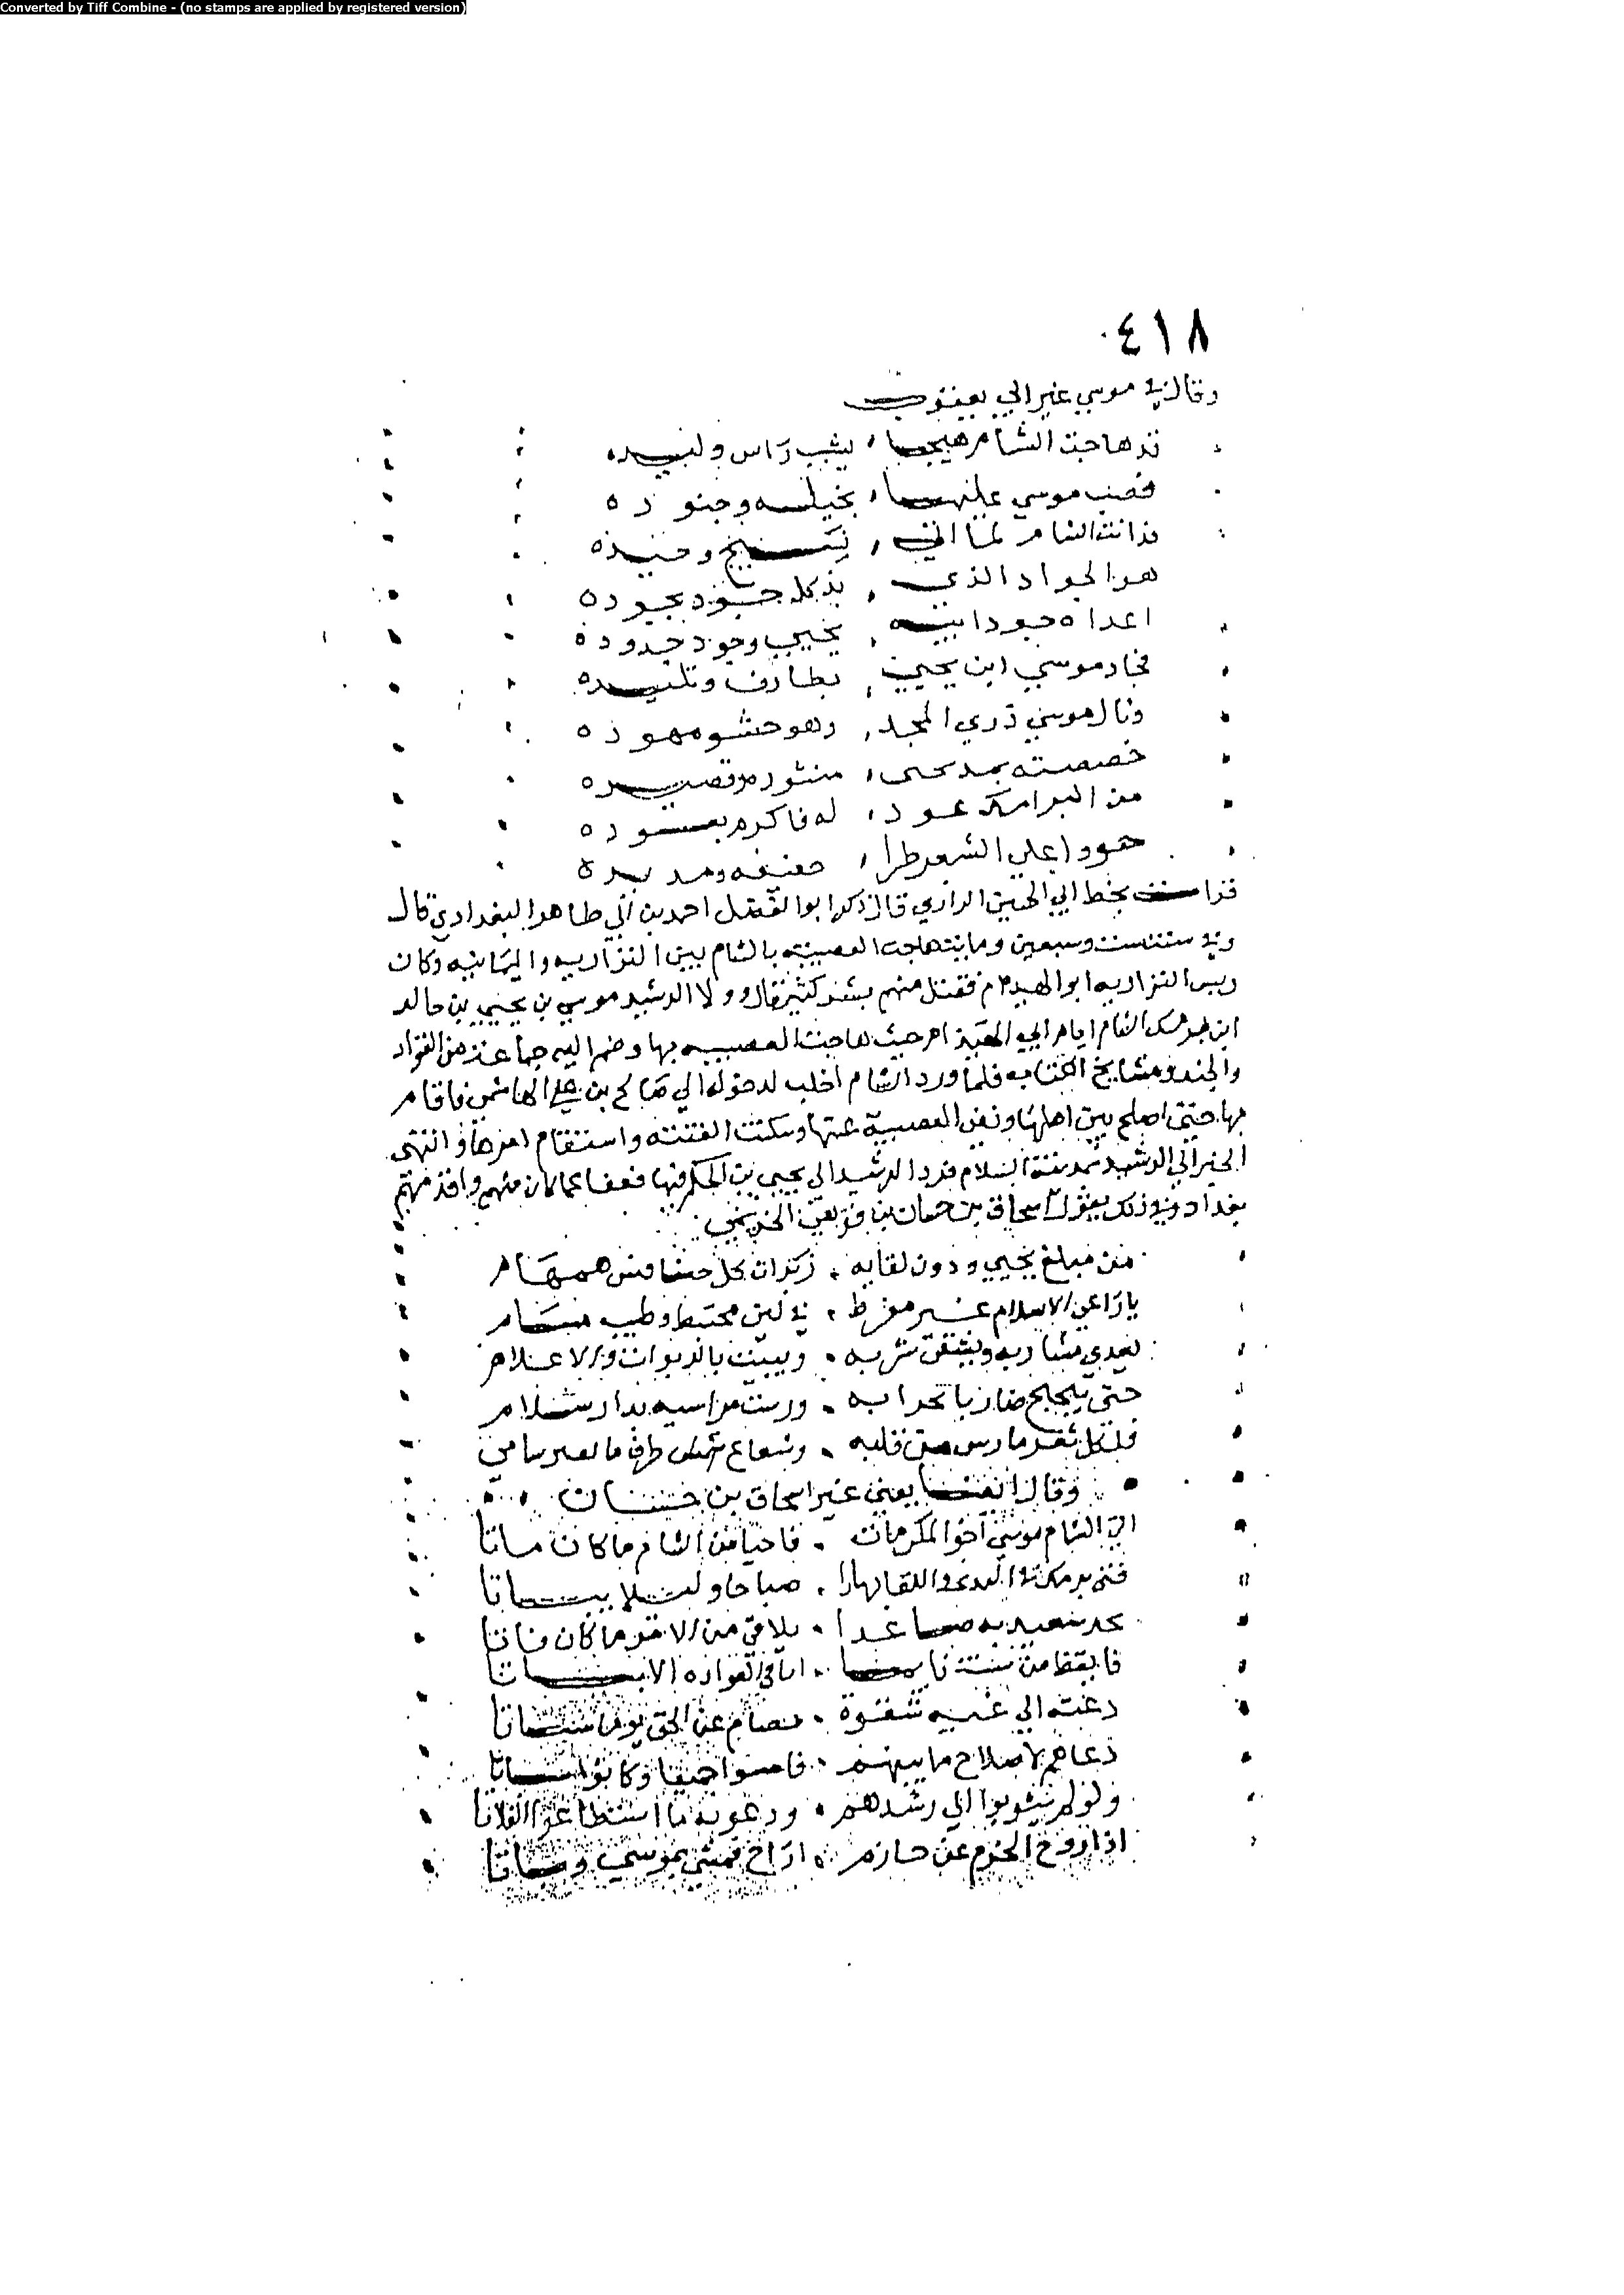 Converted by Tiff Combine - (no stamps are applied by registered version)
٤١٨
وقال في موسى غير ابي يعقوب
قد هاجت الشام هيجا ، يشيب راس وليده
فصب موسى عليها ، بخيله وجنوده
فدانت الشام لما اتى ،
هو الجواد الذي ، بذ كل جود بجوده
اعداه جود ابيه ، يحيى وجود جدوده
فجاد موسى ابن يحيى ، بطارف وتليده
ونال موسى ذرى المجد ، وهو حشو مهوده
خصصته بمديحى ، منثوره وقصيده
من البرامك عود ، له فاكرم بعوده
حووا على الشعر طرا ، خفيفه ومديده
قرات بخط ابي الحسين الرازي قال ذكر ابو الفضل احمد بن ابي طاهر البغدادي قال
وفي سنة ست وسبعين وماية هاجت العصبية بالشام بين النزاريه واليمانيه وكان
ريس النزاريه ابو الهيدام فقتل منهم بشر كثير قال وولا الرشيد موسى بن يحيى بن خالد
ابن برمك الشام ايام ابي الهيذام حيث هاجت العصبيه بها وضم اليه جماعة من القواد
والجند ومشايخ الكتاب فلما ورد الشام لدخوله الي صالح بن علي الهاشمي فاقام
بها حتى اصلح بين اهلها العصبية عنها وسكنت الفتنه واستقام امرها وانتهى
الخبر الي الرشيد بمدينة السلام فرد الرشيد الي يحيى بن الحكم فيها فعفا عما كان منهم
بغداد وفي ذلك يقول اسحاق بن حسان بن قوهي الخريمي
من مبلغ يحيى ودون لقايه ، زبرات كل همهام
يا راعي الاسلام غير مفرط ، في لين مختبط وطيب مسام
مشاربه شربه ، ويبيت بالربوات والاعلام
حتى ضاربا بجرانه ، ورست مراسيه بدار سلام
فلكل ثغر حارس من قلبه ، وشعاع طرف ما يفتر سامي
وقال ايضا يعني غير اسحاق بن حسان
اتى الشام موسى اخو المكرمات ، فاحيا من الشام ما كان ماتا
فتى برمك نهارا ، صباحا وليلا بياتا
بجد سعيد به صاعدا ، يلاقي من الامر ما كان فاتا
فايقظ من سنة نايما ،
دعته الي غيه شقوة ، عن الحق يوما
دعاهم لاصلاح ما بينهم ، فامسوا جميعا وكانوا شتاتا
ولو لم يثوبوا الي رشدهم ، ودعوته ما استطاعوا انفلاتا
اذا روح الحزم عن حازم ، اراح بموسى وباتا